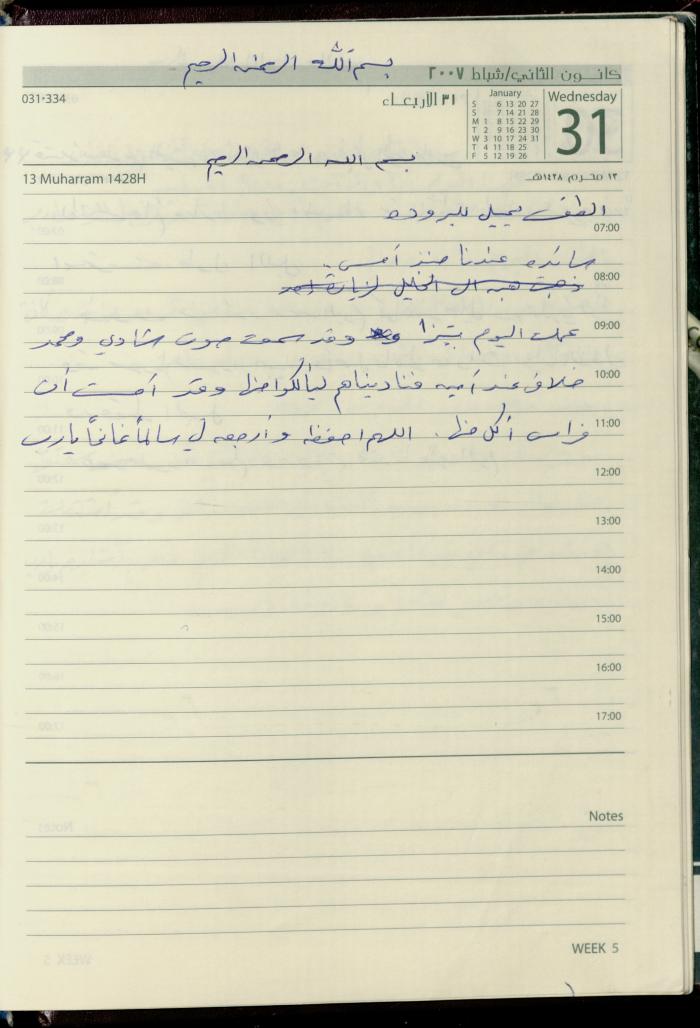 بسم الله الرحمن الرحيم
كانون الثاني/شباط ٢٠٠٧
031-334
٣١ الأربعاء
January
S 6 13 20 27
S 7 14 21 28
M 1 8 15 22 29
T 2 9 16 23 30
W 3 10 17 24 31
T 4 11 18 25
F 5 12 19 26
Wednesday
31
بسم الله الرحمن الرحيم
13 Muharram 1428H
١٢ محرم ١٤٢٨هـ
الطقس يميل للبروده
07:00
سائده عندنا منذ أمس.
08:00
ذهبت هبه الى الخليل لزيارة
09:00
عملت اليوم بيتزا وقد سمعت صوت شادي ومحمد
10:00
خلاف عند أميه فناديناهم ليأكلوا منها وقد أحببت أن
11:00
فراس أكل منها. اللهم احفظه وأرجعه لي سالماً غانماً يارب
12:00
13:00
14:00
15:00
16:00
17:00
Notes
WEEK 5